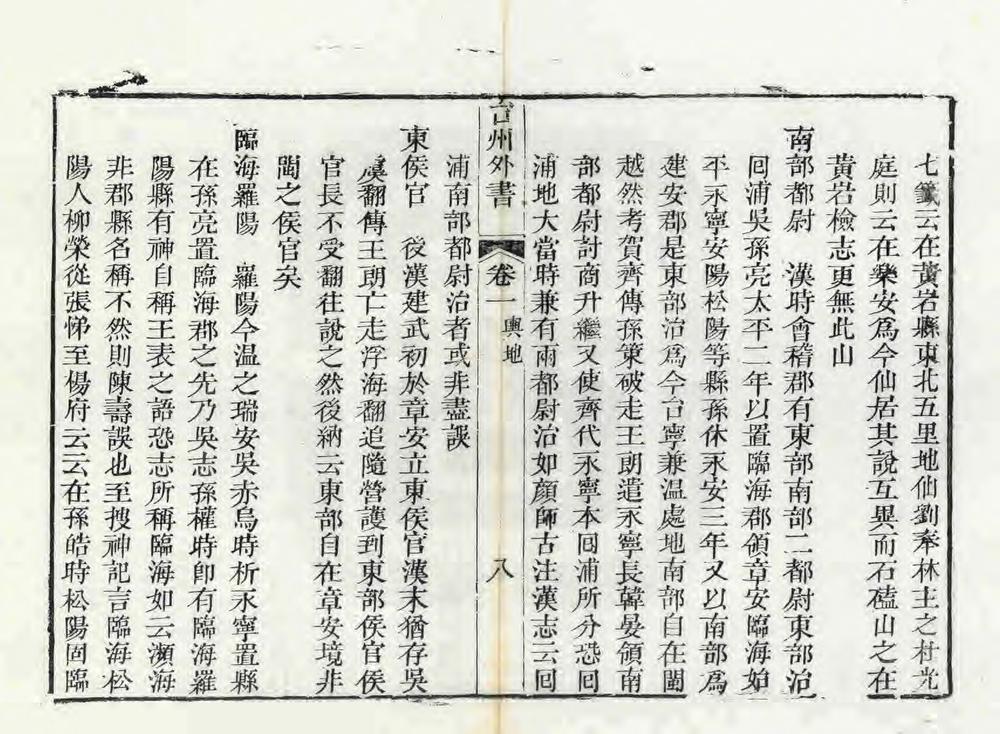 七籖云在黃岩縣東北五里地仙劉奉林主之杜光
庭則云在樂安爲今仙居其說互異而石磕山之在
黃岩檢志更無此山
南部都尉　漢時會稽郡有東部南部二都尉東部治
囘浦吳孫亮太平二年以置臨海郡領章安臨海始
平永寧安陽松陽等縣孫休永安三年又以南部爲
建安郡是東部治爲今台寧兼温處地南部自在閩
越然考賀齊傳孫策破走王朗遣永寧長韓晏領南
部都尉討商升繼又使齊代永寧本囘浦所分恐囘
浦地大當時兼有兩都尉治如顏師古注漢志云囘
台州外書
卷一
輿地
八
浦南部都尉治者或非盡誤
東侯官　後漢建武初於章安立東侯官漢末猶存吳
虞翻傳王朗亡走浮海翻追隨營護到東部侯官侯
官長不受翻往說之然後納云東部自在章安境非
閩之侯官矣
臨海羅陽　羅陽今温之瑞安吳赤烏時析永寧置縣
在孫亮置臨海郡之先乃吳志孫權時卽有臨海羅
陽縣有神自稱王表之語恐志所稱臨海如云瀕海
非郡縣名稱不然則陳壽誤也至搜神記言臨海松
陽人柳榮從張悌至楊府云云在孫皓時松陽固臨